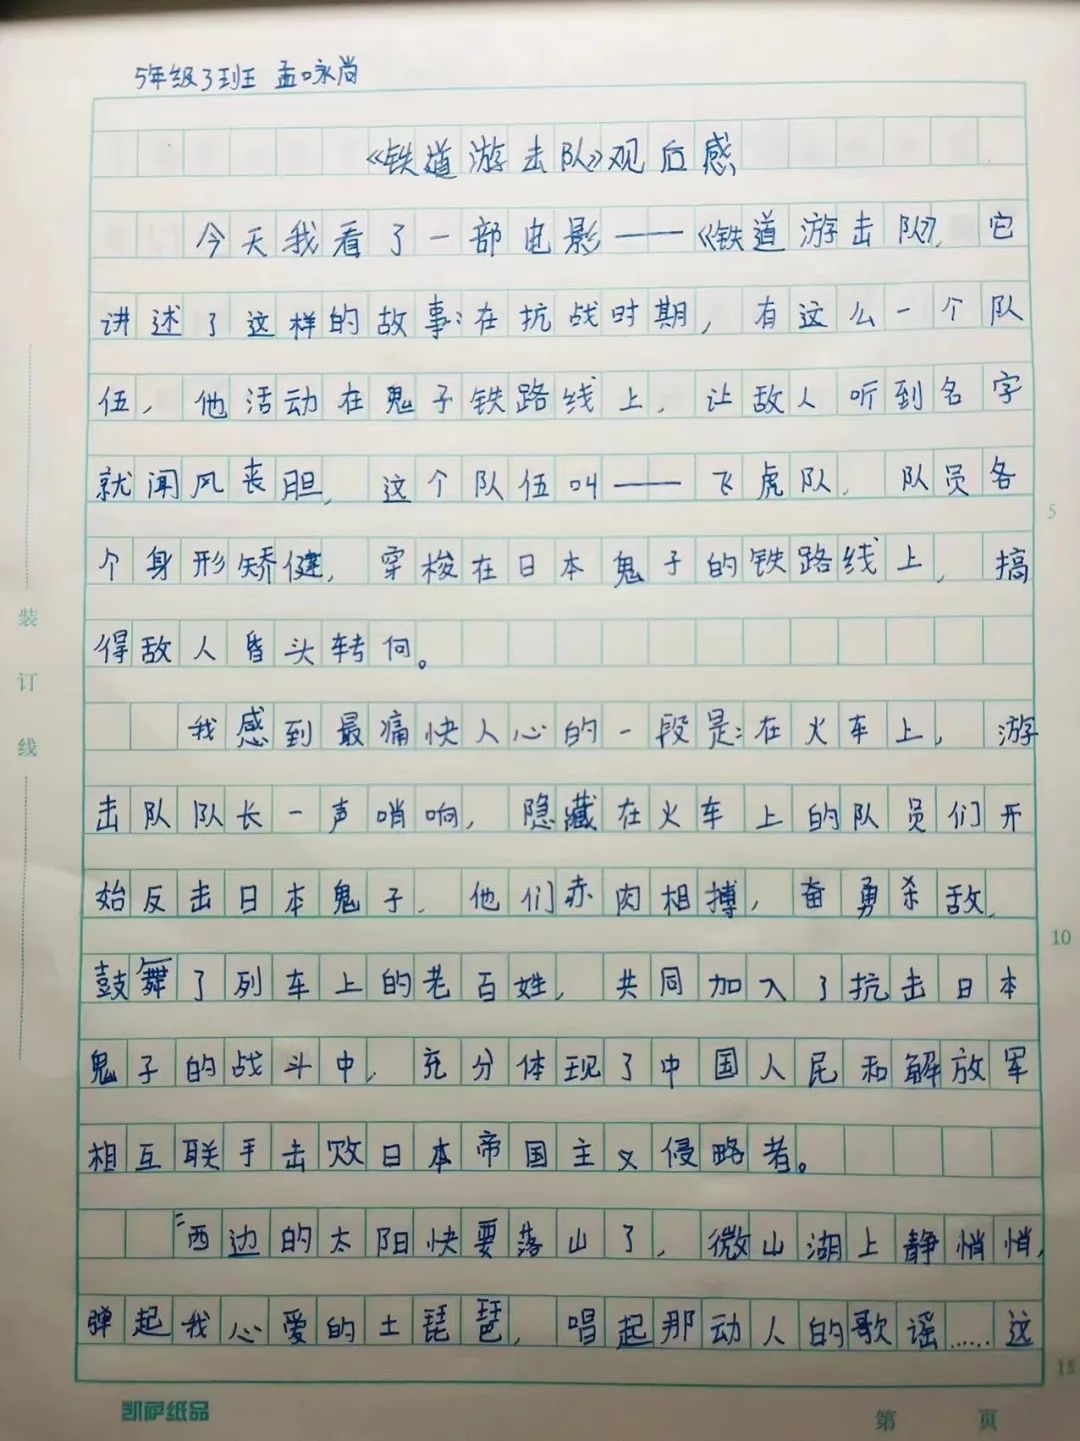 5年级3班 孟咏尚
《铁道游击队》观后感
今天我看了一部电影——《铁道游击队》，它
讲述了这样的故事：在抗战时期，有这么一个队
伍，他活动在鬼子铁路线上，让敌人听到名字
就闻风丧胆，这个队伍叫——飞虎队，队员各
个身形矫健，穿梭在日本鬼子的铁路线上，搞
得敌人昏头转向。
我感到最痛快人心的一段是：在火车上，游
击队队长一声哨响，隐藏在火车上的队员们开
始反击日本鬼子，他们赤肉相搏，奋勇杀敌，
鼓舞了列车上的老百姓，共同加入了抗击日本
鬼子的战斗中，充分体现了中国人民和解放军
相互联手击败日本帝国主义侵略者。
“西边的太阳快要落山了，微山湖上静悄悄，
弹起我心爱的土琵琶，唱起那动人的歌谣……这
装订线
5
10
15
凯萨纸品
第 页